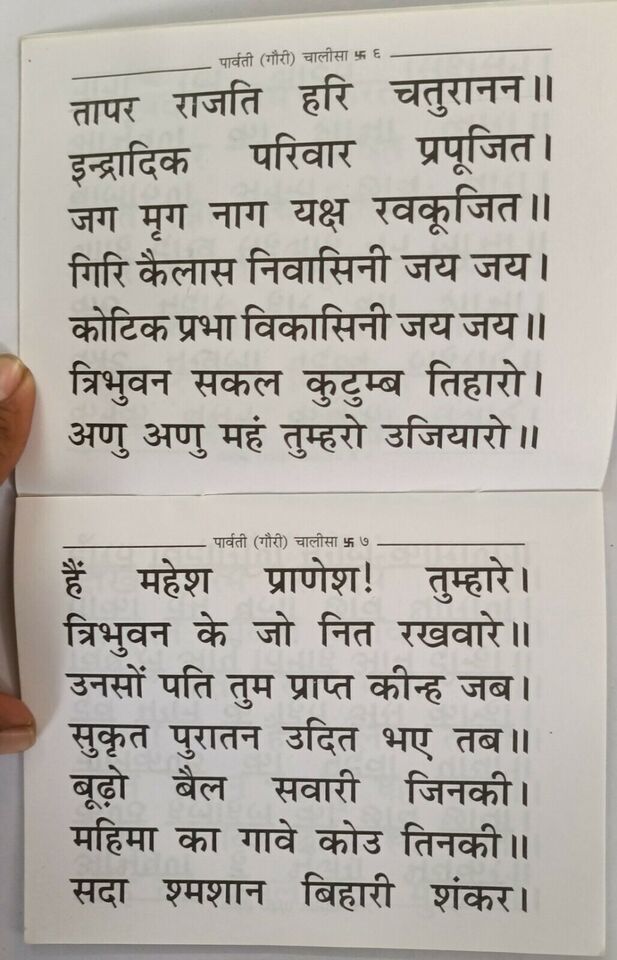 पार्वती (गौरी) चालीसा 卐 ६
तापर राजति हरि चतुरानन॥
इन्द्रादिक परिवार प्रपूजित।
जग मृग नाग यक्ष रवकूजित॥
गिरि कैलास निवासिनी जय जय।
कोटिक प्रभा विकासिनी जय जय॥
त्रिभुवन सकल कुटुम्ब तिहारो।
अणु अणु महं तुम्हरो उजियारो॥
पार्वती (गौरी) चालीसा 卐 ७
हैं महेश प्राणेश! तुम्हारे।
त्रिभुवन के जो नित रखवारे॥
उनसों पति तुम प्राप्त कीन्ह जब।
सुकृत पुरातन उदित भए तब॥
बूढ़ो बैल सवारी जिनकी।
महिमा का गावे कोउ तिनकी॥
सदा श्मशान बिहारी शंकर।